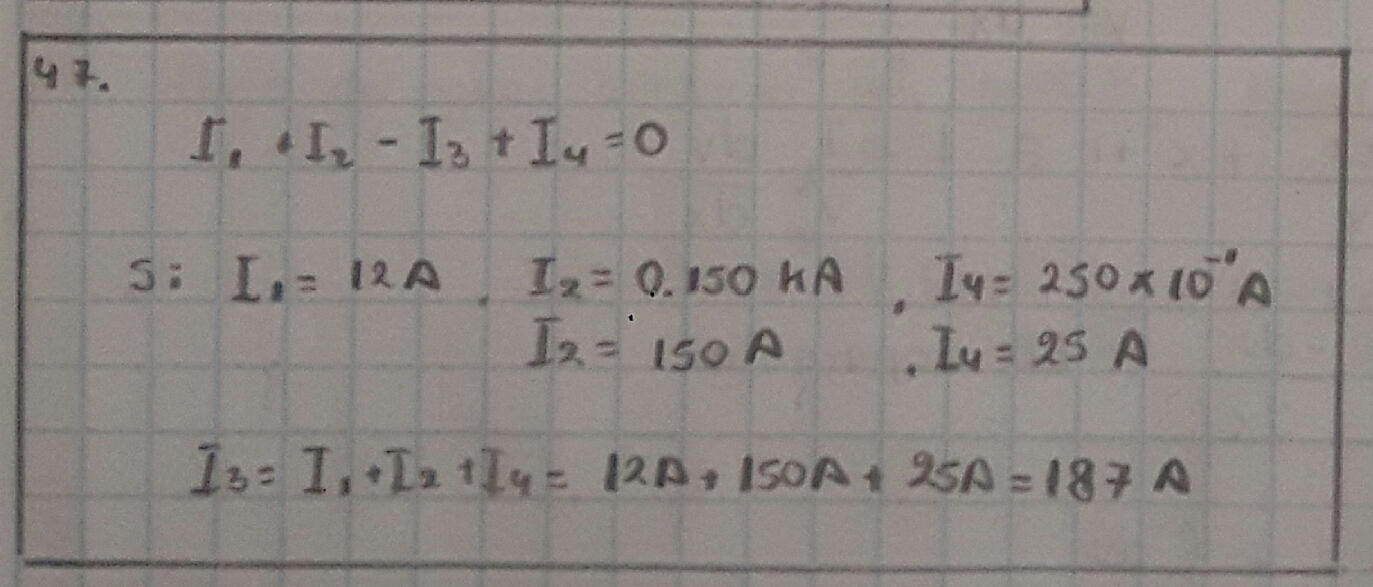 47.
I₁ + I₂ - I₃ + I₄ = 0
Si I₁ = 12A , I₂ = 0.150 kA , I₄ = 250 x 10⁻¹ A
I₂ = 150 A , I₄ = 25 A
I₃ = I₁ + I₂ + I₄ = 12A + 150A + 25A = 187 A